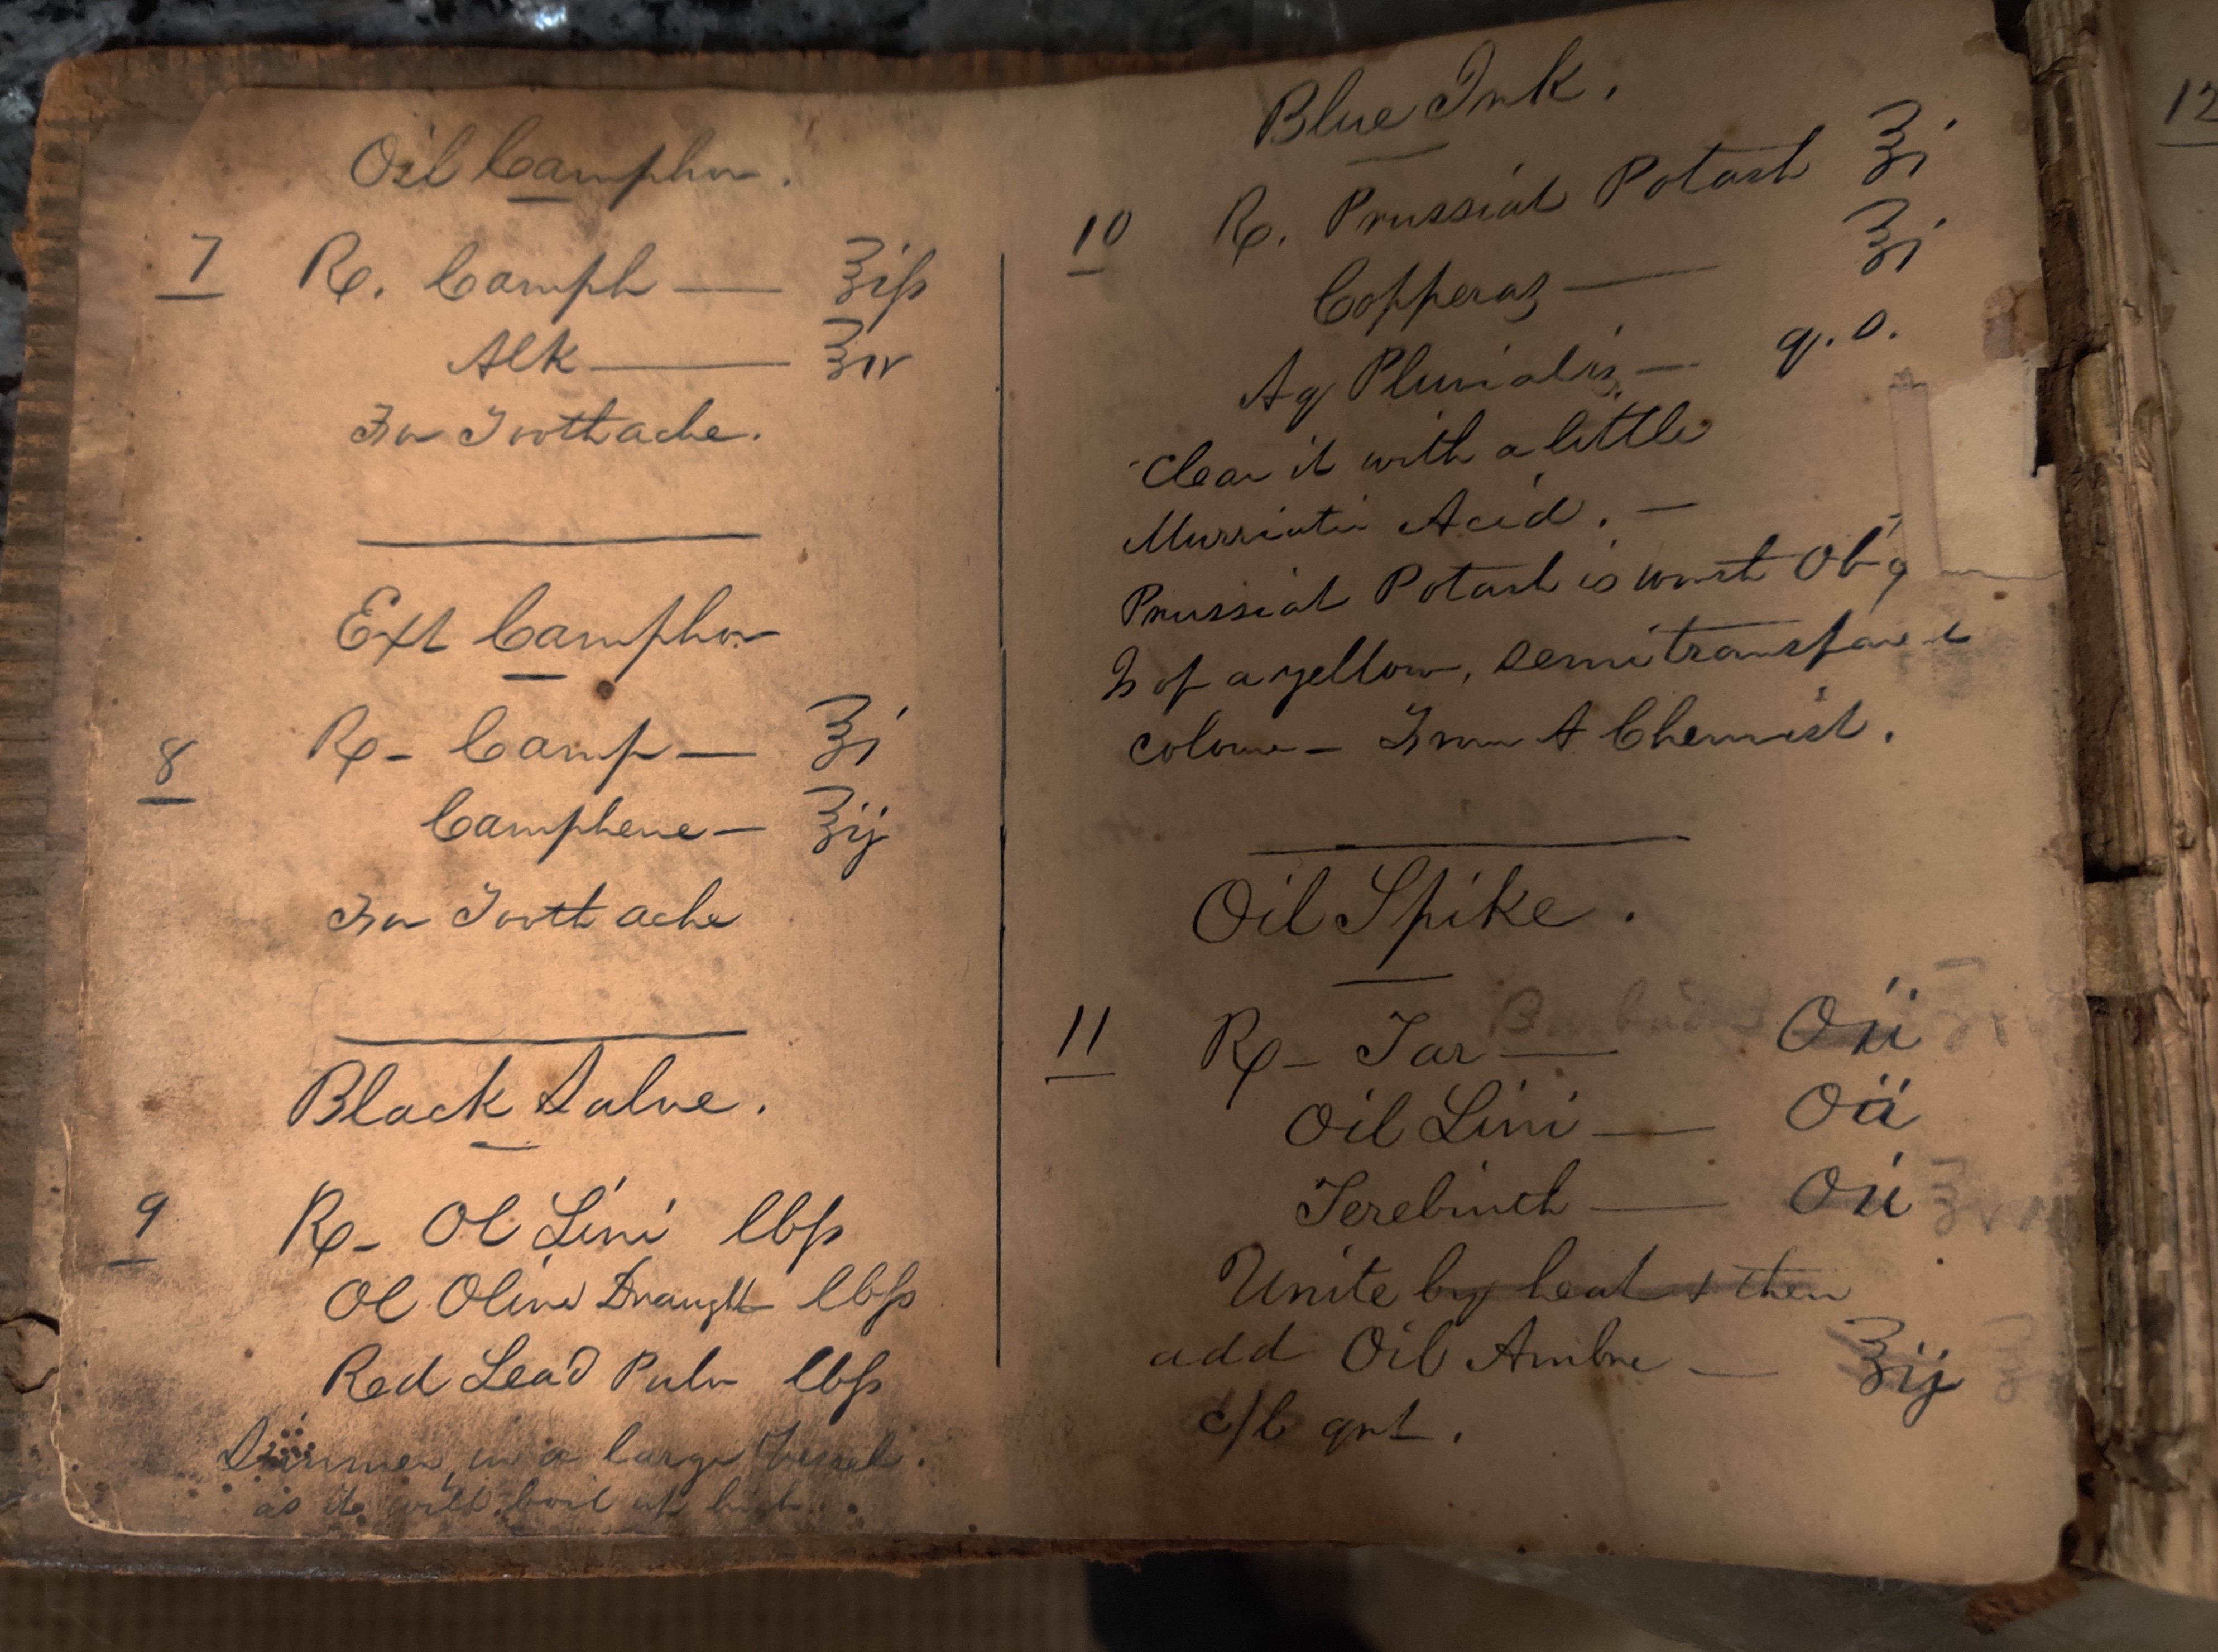 Oil Camphor.
7 Rx. Camph — ℥iſs
Alk — ℥iv
For Toothache.
Ext Camphor
8 Rx - Camp — ℥i
Camphene — ℥ij
For Tooth ache
Black Salve.
9 Rx - Ol Lini lbſs
Ol Olive Draught lbſs
Red Lead Pulv lbſs
Simmer in a large Vessel.
as it will boil up high.
Blue Ink.
10 Rx. Prussiat Potash ℥i
Copperas — ℥i
Aq Pluvialis — q.s.
Clear it with a little
Murriatic Acid. —
Prussiat Potash is
Is of a yellow, semitransparent
colour — From A Chemist.
Oil Spike.
11 Rx - Tar — Oii
Oil Lini — Oii
Terebinth — Oii
Unite by heat & then
add Oil Ambre — ℥ij
12